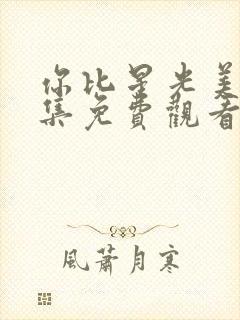 你比星光美
集免費觀看
風蕭月寒